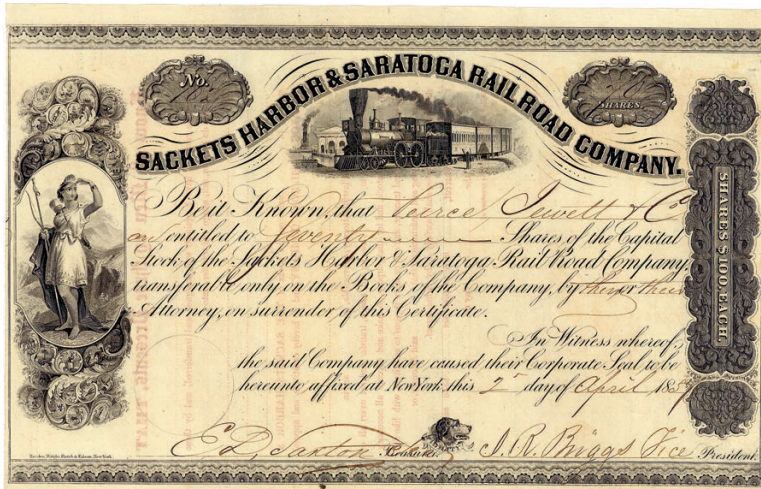 No.
70
SHARES.
SACKETS HARBOR & SARATOGA RAIL ROAD COMPANY.
Be it Known, that Peirce, Jewett & Co
are entitled to Seventy Shares of the Capital
Stock of the Sackets Harbor & Saratoga Rail Road Company,
transferable only on the Books of the Company, by them or their
Attorney, on surrender of this Certificate.
In Witness whereof,
the said Company have caused their Corporate Seal to be
hereunto affixed at New York this 2 day of April 185
E. D. Saxton
J. R. Briggs Vice President.
SHARES $100 EACH.